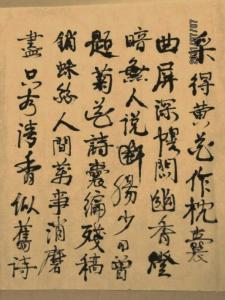 采得黄花作枕囊
曲屏深幌閟幽香燈
暗無人説斷腸少日曾
題菊花詩蠹編殘稿
鎖蛛絲人間萬事消磨
盡只有清香似舊詩